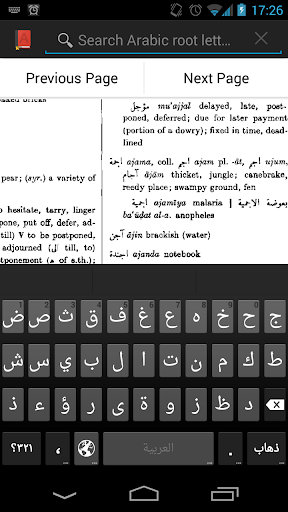 17:26
Search Arabic root lett...
Previous Page
Next Page
pear; (syr.) a variety of
o hesitate, tarry, linger
pone, put off, defer, ad-
till) V to be postponed,
adjourned (الى till, to)
tponement (ه of s.th.);
مؤجل mu'ajjal delayed, late, post-
poned, deferred; due for later payment
(portion of a dowry); fixed in time, dead-
lined
اجمة ajama, coll. اجم ajam pl. -āt, اجم ujum,
آجام ājām thicket, jungle; canebrake,
reedy place; swampy ground, fen
اجمية ajamīya malaria | بعوضة الاجمية
ba'ūḍat al-a. anopheles
آجن ājin brackish (water)
اجندة ajanda notebook
ض ص ق ف غ ع ه خ ح ج
ش س ي ب ل ا ت ن م ك ط
ذ ء ؤ ر ى ة و ز ظ د
٣٢١؟
،
العربية
.
ذهاب